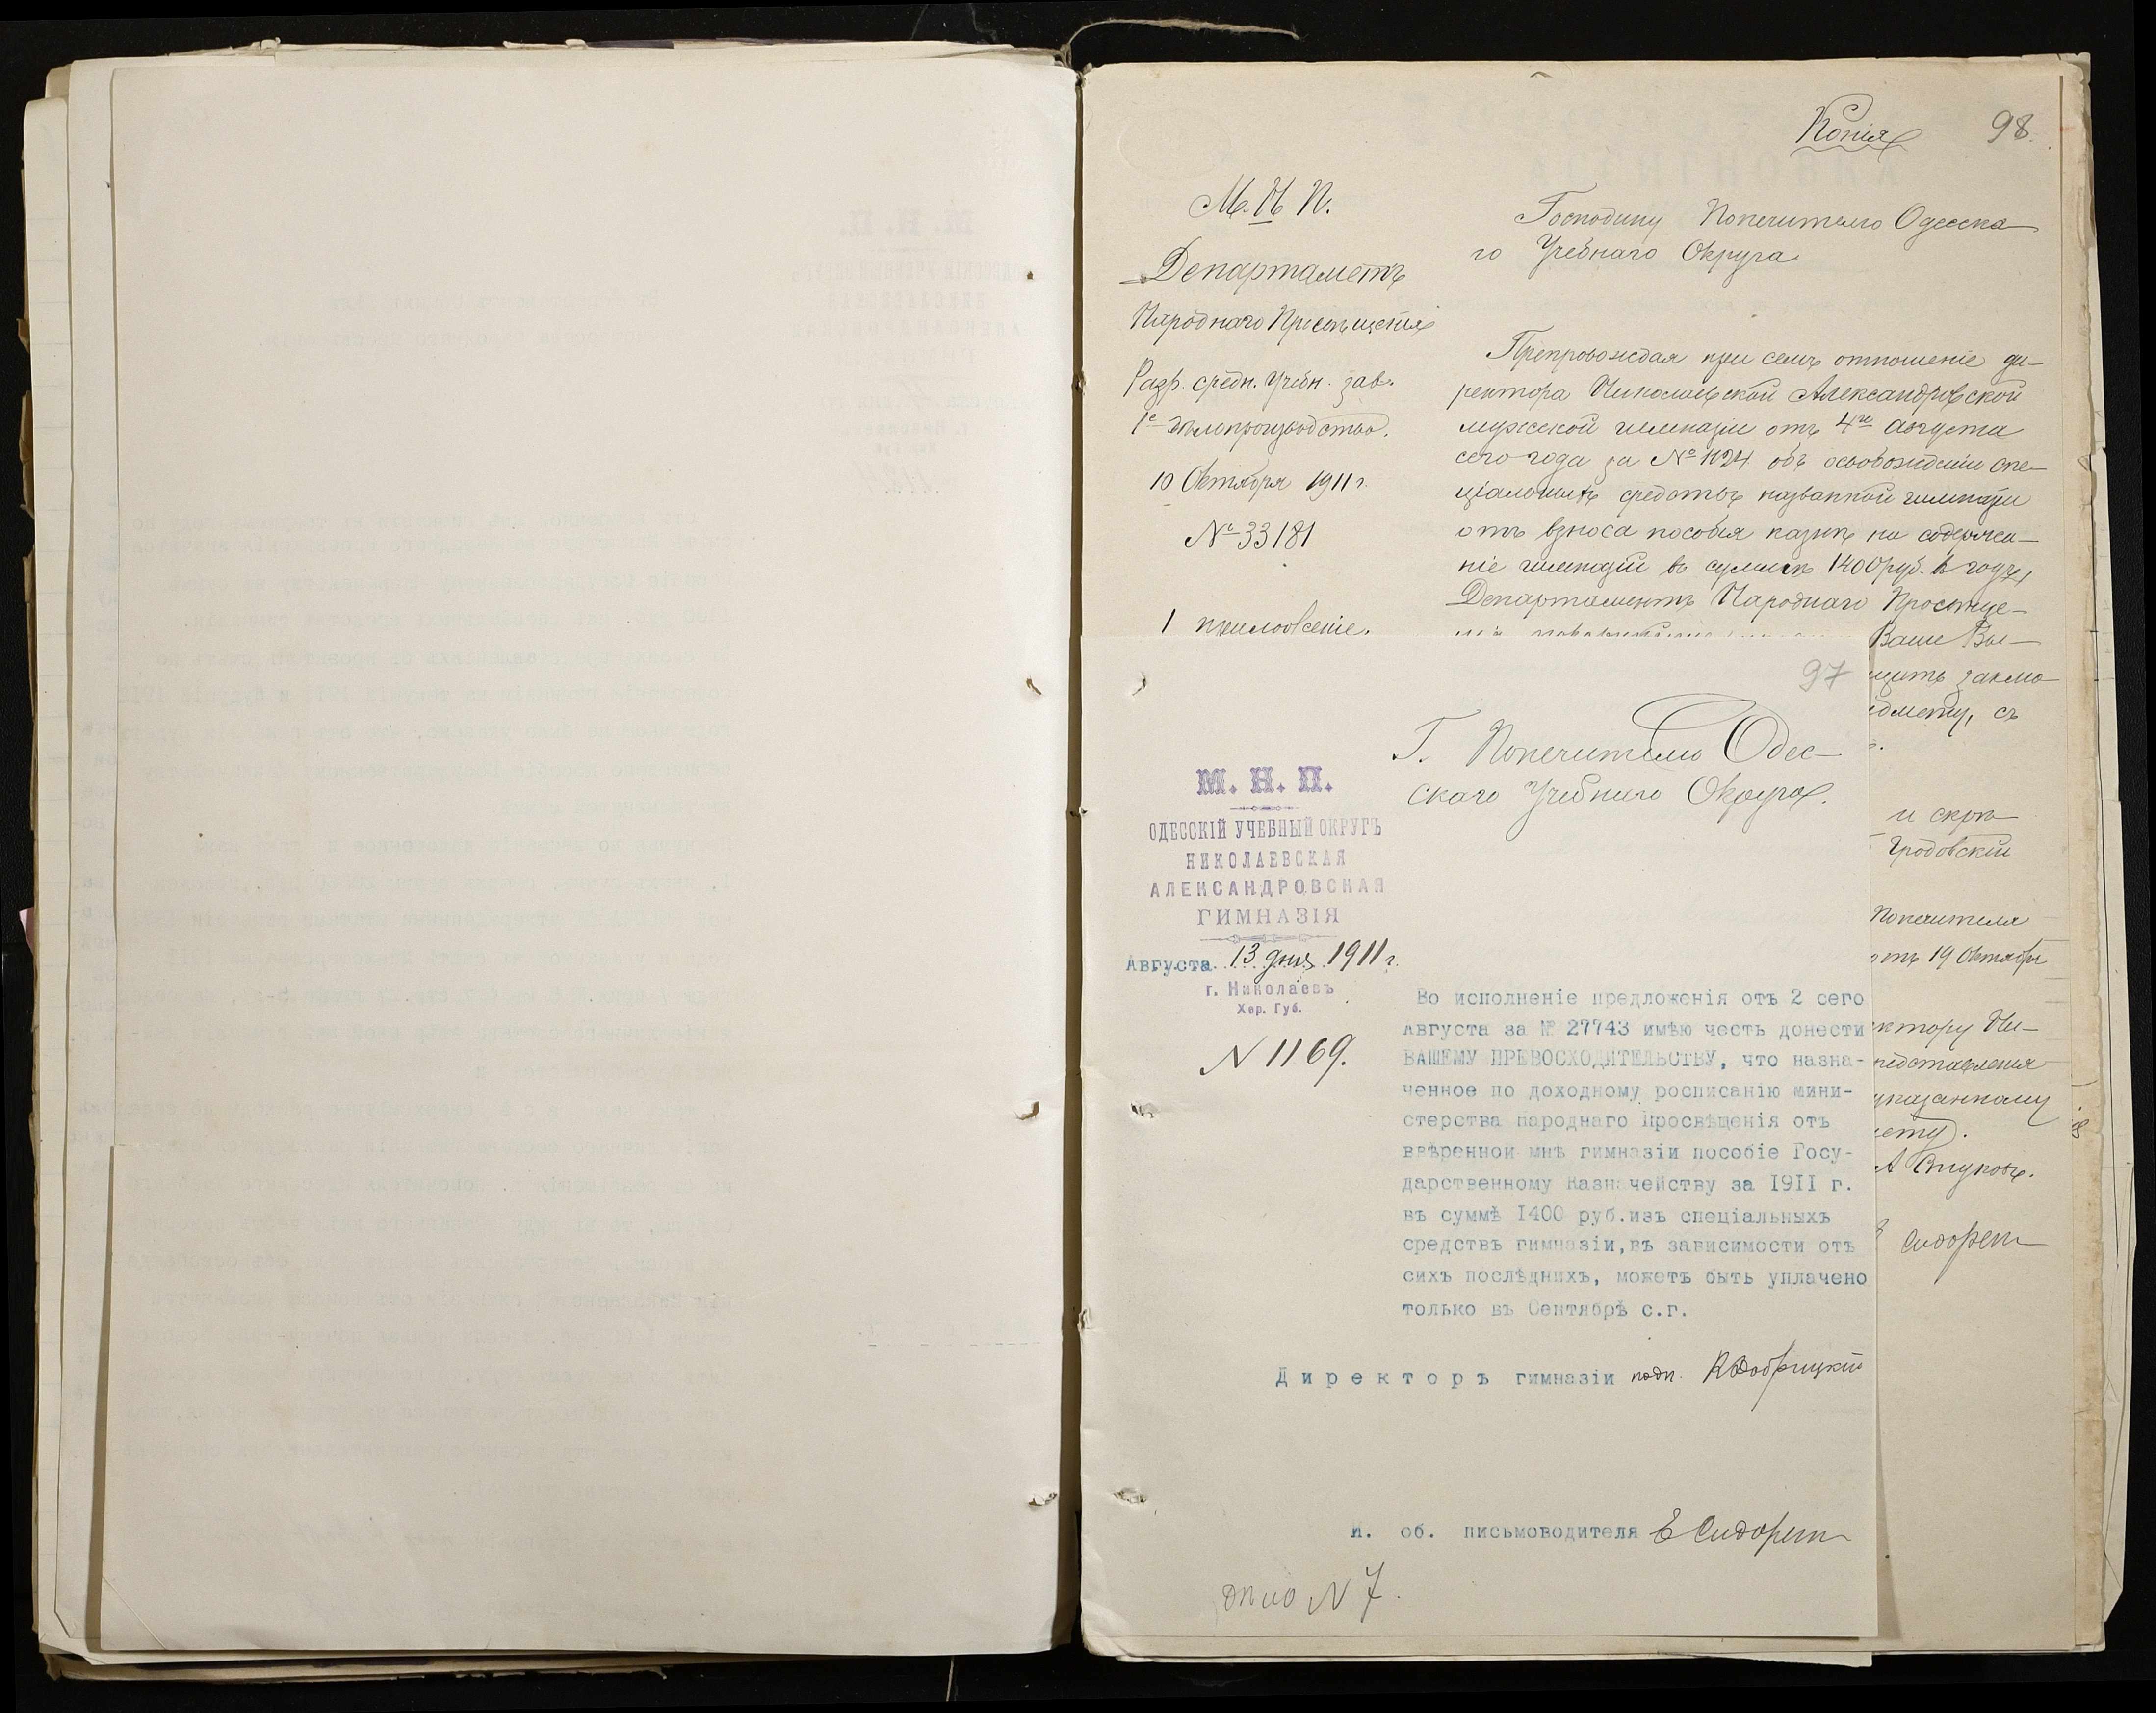 Копія
98.
М. Н. П.
Департаметъ
Народнаго Просвѣщенія
Разр. средн. учебн. зав.
1е дѣлопроизводство.
10 Октября 1911 г.
№ 33181
1 приложеніе.
Господину Попечителю Одесска
го Учебнаго Округа
Препровождая при семъ отношеніе ди-
ректора Николаевской Александровской
мужской гимназіи отъ 4го августа
сего года за № 1124 объ освобожденіи спе-
ціальныхъ средствъ названной гимназіи
отъ взноса пособія казнѣ на содержа-
ніе гимназіи въ суммѣ 1400 руб. въ годъ,
Департаментъ Народнаго Просвѣще-
Ваше Вы-
заклю
съ
и скрѣ
Гродовскій
Попечителя
отъ 19 Октября
ктору Ни-
редставленія
указанному
мету).
А Внуковъ.
Сидорен
97
Г. Попечителю Одес-
скаго Учебнаго Округа.
М. Н. П.
ОДЕССКІЙ УЧЕБНЫЙ ОКРУГЪ
НИКОЛАЕВСКАЯ
АЛЕКСАНДРОВСКАЯ
ГИМНАЗІЯ
Августа 13 дня 1911 г.
г. Николаевъ
Хер. Губ.
N 1169.
Во исполненіе предложенія отъ 2 сего
Августа за № 27743 имѣю честь донести
ВАШЕМУ ПРЕВОСХОДИТЕЛЬСТВУ, что назна-
ченное по доходному росписанію мини-
стерства народнаго Просвѣщенія отъ
ввѣренной мнѣ гимназіи пособіе Госу-
дарственному Казначейству за 1911 г.
въ суммѣ 1400 руб.изъ спеціальныхъ
средствъ гимназіи,въ зависимости отъ
сихъ послѣднихъ, можетъ быть уплачено
только въ Сентябрѣ с.г.
Директоръ гимназіи подп.
И. об. письмоводителя Е Сидорен
дѣло N 7.